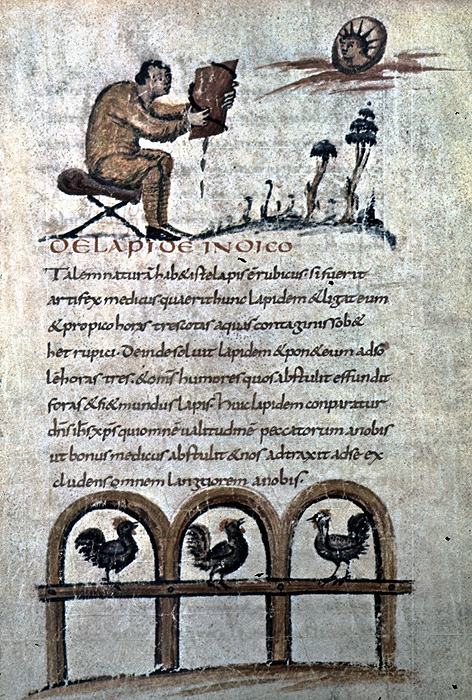 DE LAPIDE INDICO
Talem naturā hab& iste lapis ērubicus. si fuerit
artifex medicus quaerit hunc lapidem & ligat eum
& propico horas tres totas aquas contaginis sob&
het rupici. Deinde soluit lapidem & pon& eum adso
le horas tres. & oms̄ humores quos abstulit effundit
foras & fi& mundus lapis. huic lapidem conparatur
dn̄s ih̄s xp̄s qui omnē ualitudinē peccatorum anobis
ut bonus medicus abstulit & nos adtraxit adse ex
cludens omnem languorem anobis.